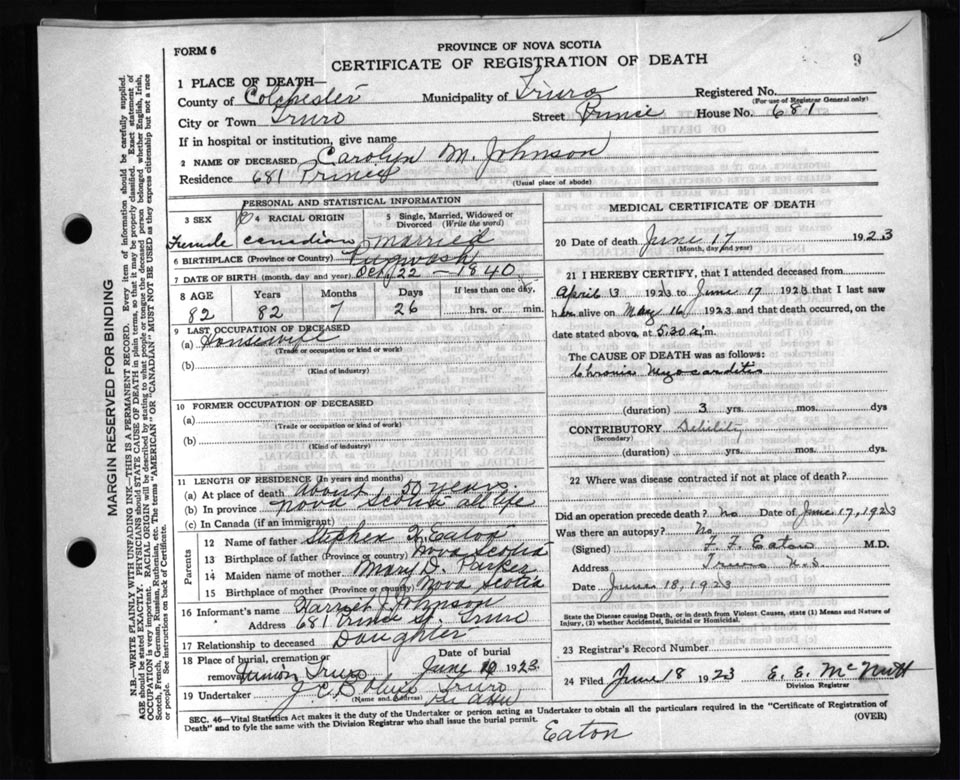 PROVINCE OF NOVA SCOTIA
FORM 6
CERTIFICATE OF REGISTRATION OF DEATH
9
1 PLACE OF DEATH—
County of Colchester Municipality of Truro Registered No.
(For use of Registrar General only)
City or Town Truro Street Prince House No. 681
If in hospital or institution, give name
2 NAME OF DECEASED Carolyn M. Johnson
Residence 681 Prince
(Usual place of abode)
PERSONAL AND STATISTICAL INFORMATION
3 SEX 4 RACIAL ORIGIN 5 Single, Married, Widowed or Divorced (Write the word)
Female Canadian Married
6 BIRTHPLACE (Province or Country) Pugwash
7 DATE OF BIRTH (month, day and year) Oct 22 — 1840
8 AGE Years Months Days If less than one day
82 82 7 26 hrs. or min.
9 LAST OCCUPATION OF DECEASED
(a) Housewife
(Trade or occupation or kind or work)
(b)
(Kind of industry)
10 FORMER OCCUPATION OF DECEASED
(a)
(Trade or occupation or kind of work)
(b)
(Kind of industry)
11 LENGTH OF RESIDENCE (In years and months)
(a) At place of death About 50 years.
(b) In province Nova Scotia all life
(c) In Canada (if an immigrant)
Parents
12 Name of father Stephen Eaton
13 Birthplace of father (Province or country) Nova Scotia
14 Maiden name of mother Mary D. Parker
15 Birthplace of mother (Province or country) Nova Scotia
16 Informant's name Harriet Johnson
Address 681 Prince St. Truro
17 Relationship to deceased Daughter
18 Place of burial, cremation or removal Date of burial
Truro June 1923
19 Undertaker J. C. B. Truro
(Name and Address)
MEDICAL CERTIFICATE OF DEATH
20 Date of death June 17 1923
(Month, day and year)
21 I HEREBY CERTIFY, that I attended deceased from
April 3 1923 to June 17 1923 that I last saw
her alive on May 16 1923 and that death occurred, on the
date stated above, at 5.30 a.m.
The CAUSE OF DEATH was as follows:
Chronic Myocarditis
(duration) 3 yrs. mos. dys
CONTRIBUTORY Debility
(Secondary)
(duration) yrs. mos. dys.
22 Where was disease contracted if not at place of death?
Did an operation precede death? No Date of June 17, 1923
Was there an autopsy? No
(Signed) F. F. Eaton M.D.
Address Truro N.S
Date June 18, 1923
State the Disease causing Death, or in death from Violent Causes, state (1) Means and Nature of Injury, (2) whether Accidental, Suicidal or Homicidal.
23 Registrar's Record Number
24 Filed June 18 1923 E. E. McNutt
Division Registrar
SEC. 46—Vital Statistics Act makes it the duty of the Undertaker or person acting as Undertaker to obtain all the particulars required in the "Certificate of Registration of
Death" and to fyle the same with the Division Registrar who shall issue the burial permit. (OVER)
Eaton
MARGIN RESERVED FOR BINDING
N.B.—WRITE PLAINLY WITH UNFADING INK—THIS IS A PERMANENT RECORD. Every item of information should be carefully supplied.
AGE should be stated EXACTLY. PHYSICIANS should STATE CAUSE OF DEATH in plain terms, so that it may be properly classified. Exact statement of
OCCUPATION is very important. RACIAL ORIGIN will be described by stating to what people or tongue the deceased person belonged whether English, Irish,
Scotch, French, German, Russian, Ruthenian, etc. The terms "AMERICAN" OR "CANADIAN" MUST NOT BE USED as they express citizenship but not a race
or people. See instructions on back of Certificate.